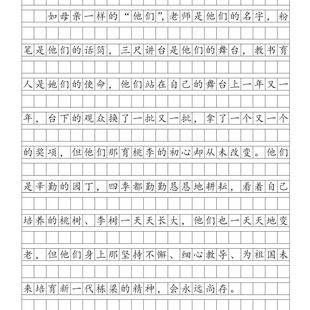 如母亲一样的“他们”，老师是他们的名字，粉
笔是他们的话筒，三尺讲台是他们的舞台，教书育
人是她们的使命，他们站在自己的舞台上一年又一
年，台下的观众换了一批又一批，拿了一个又一个
的奖项，但他们那育桃李的初心却从未改变。他们
是辛勤的园丁，四季都勤勤恳恳地耕耘，看着自己
培养的桃树、李树一天天长大，他们也一天天地变
老，但他们身上那坚持不懈、细心教导、为祖国未
来培育新一代栋梁的精神，会永远尚存。